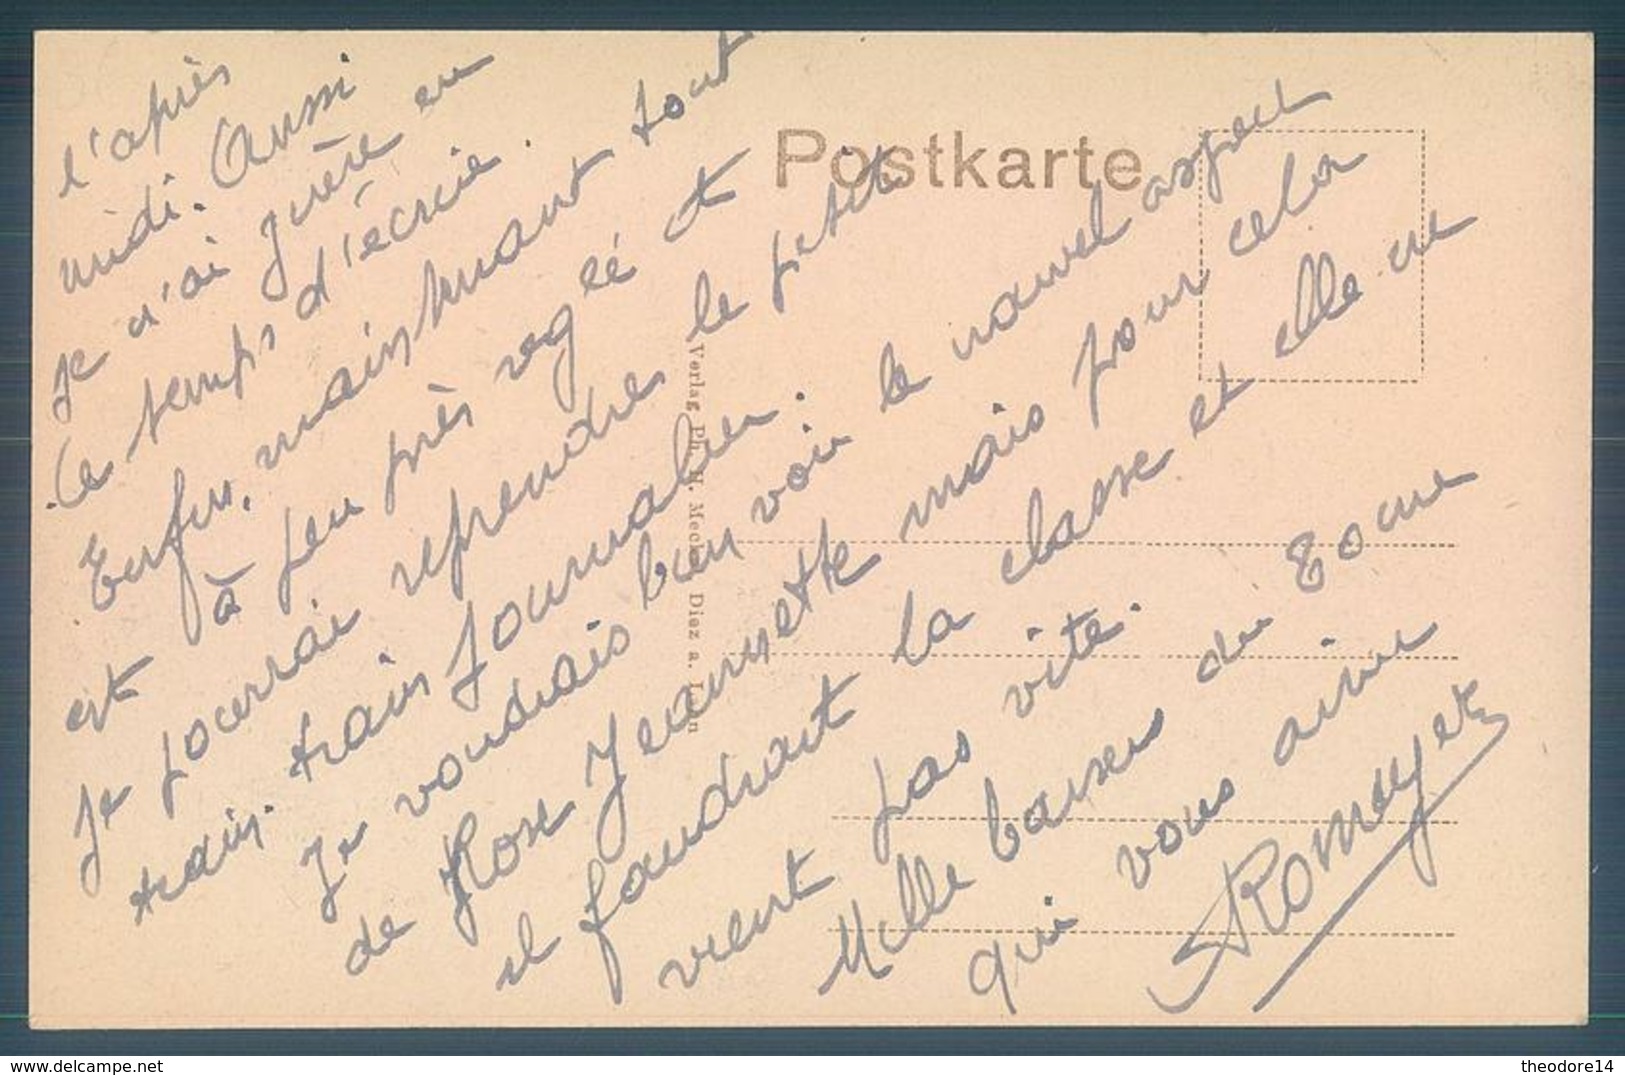 l'après
midi. Aussi
je n'ai guère eu
le temps d'écrire.
Enfin, maintenant tout
est à peu près réglé et
je pourrai reprendre le petit
train. train journalier.
Je voudrais bien voir le nouvel aspect
de Rose Jeannette mais pour cela
il faudrait la classe et elle ne
vient pas vite.
Mille baisers du Tome
qui vous aime
Romeyer
Postkarte
Verlag Ph. H. Meckel, Diez a. Lahn
theodore14